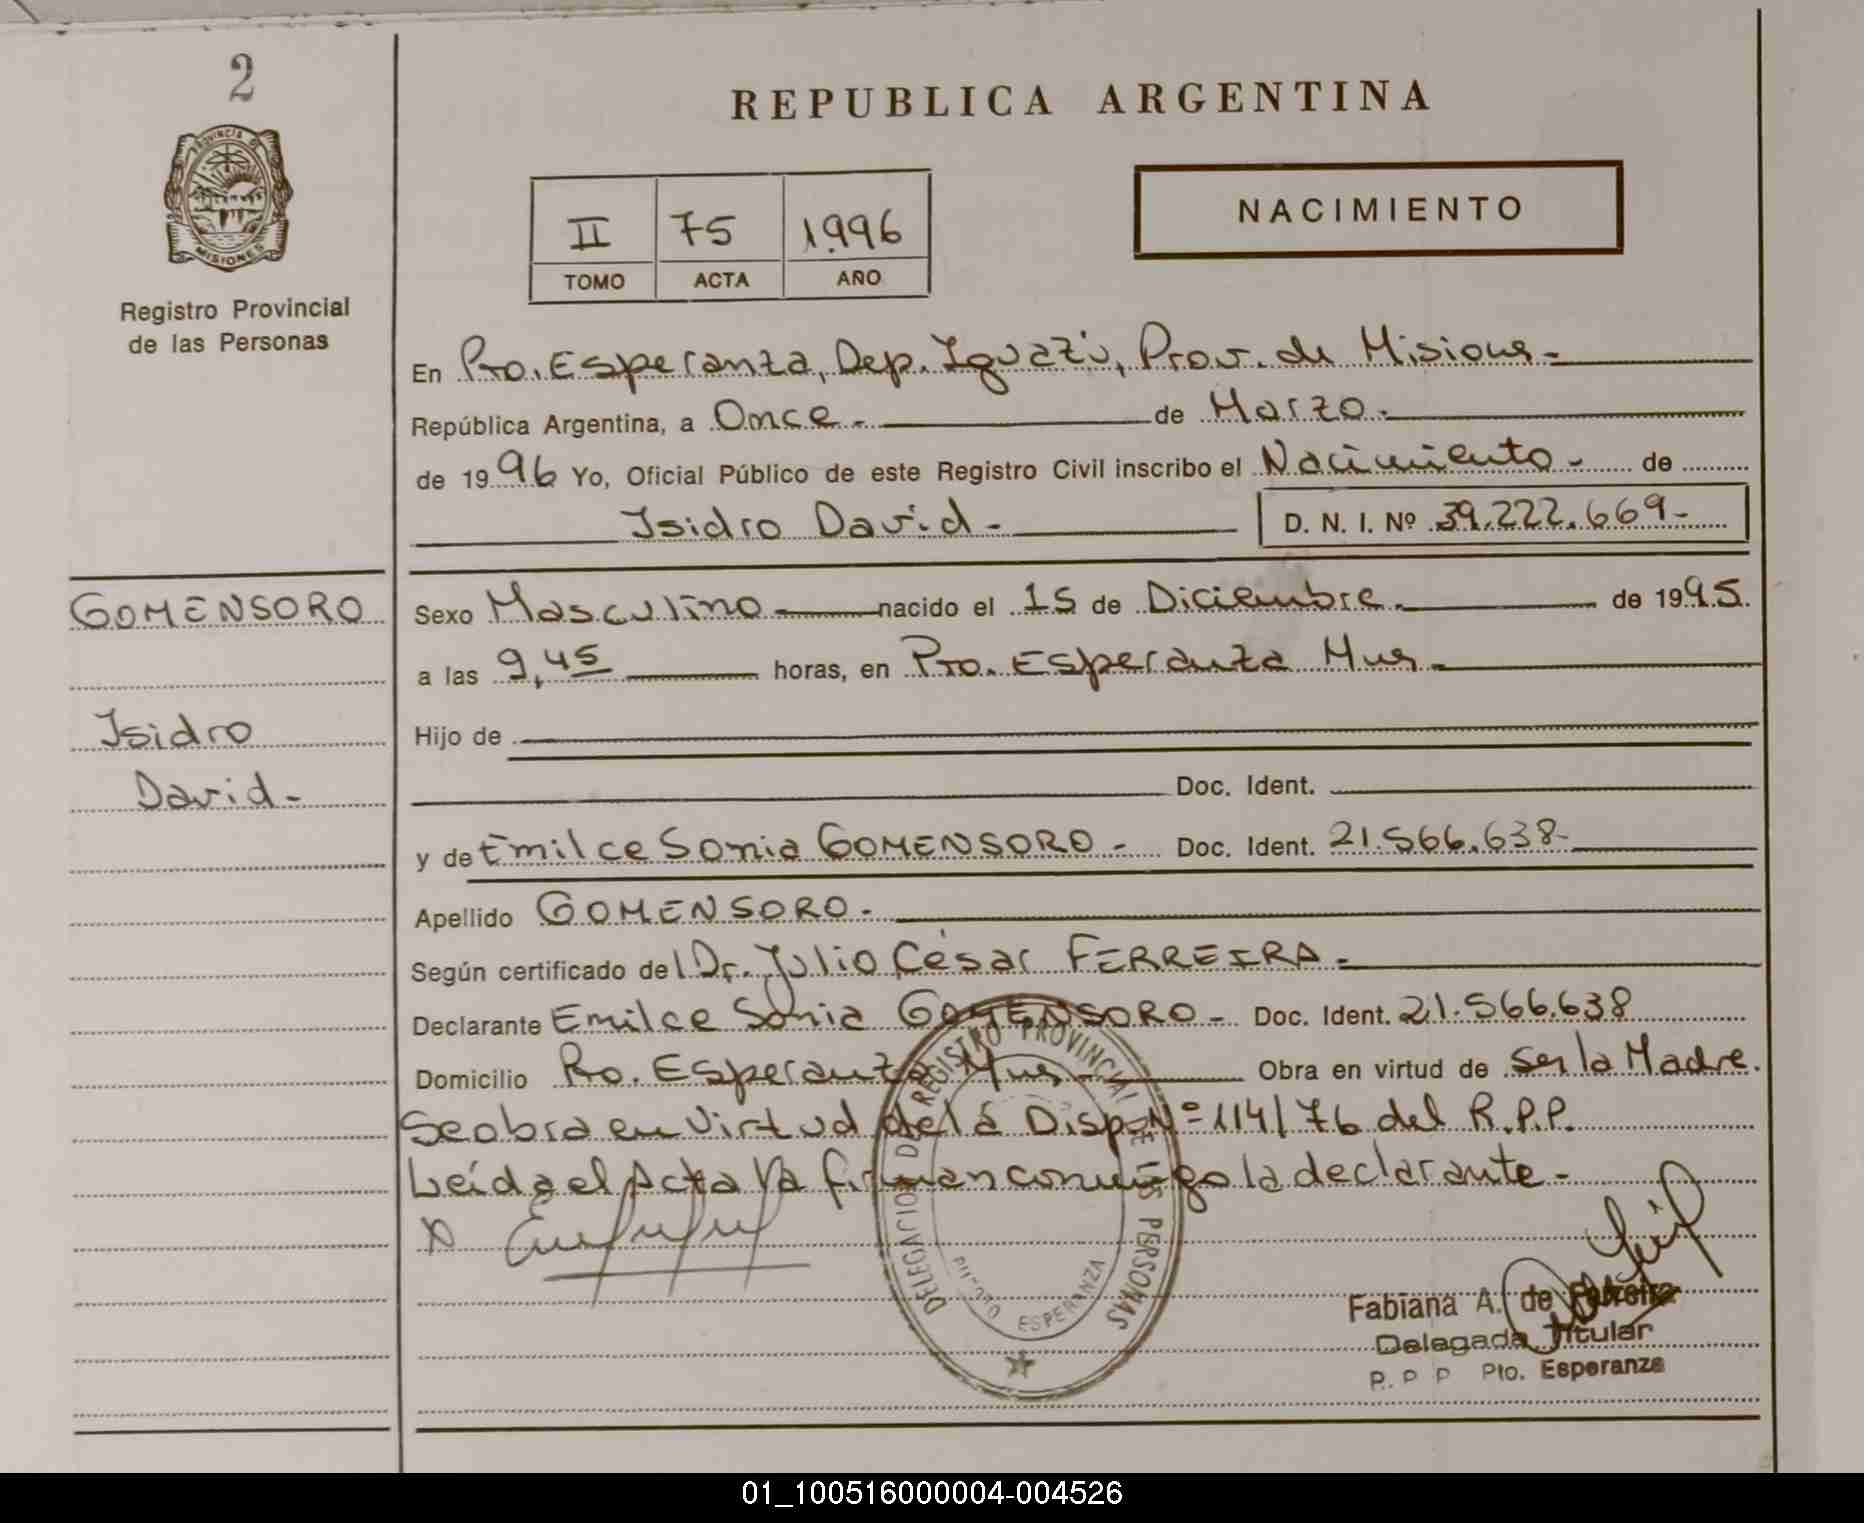 2
PROVINCIA DE
MISIONES
Registro Provincial
de las Personas
REPUBLICA ARGENTINA
II 75 1996
TOMO ACTA AÑO
NACIMIENTO
En Pto. Esperanza, Dep. Iguazú, Prov. de Misiones-
República Argentina, a Once.- de Marzo.-
de 1996 Yo, Oficial Público de este Registro Civil inscribo el Nacimiento- de
Isidro David- D. N. I. Nº 39.222.669-
GOMENSORO
Isidro
David-
Sexo Masculino- nacido el 15 de Diciembre.- de 1995.
a las 9,45 horas, en Pto. Esperanza Mnes.-
Hijo de
Doc. Ident.
y de Emilce Sonia GOMENSORO- Doc. Ident. 21.566.638-
Apellido GOMENSORO.-
Según certificado del Dr. Julio César FERREIRA.-
Declarante Emilce Sonia GOMENSORO- Doc. Ident. 21.566.638
Domicilio Pto. Esperanza Mnes- Obra en virtud de Ser la Madre.
Se obra en virtud de la Disp. Nº 114/76 del R.P.P.
Leída el Acta la firman conmigo la declarante-
DELEGACION DEL REGISTRO PROVINCIAL DE LAS PERSONAS
PUERTO ESPERANZA
Fabiana A. de Ferreira
Delegada Titular
R. P. P. Pto. Esperanza
01_100516000004-004526